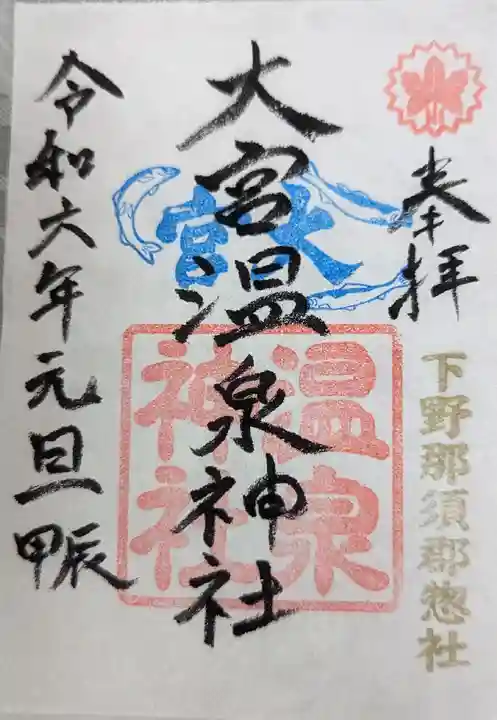 奉拝
下野那須郡惣社
大宮温泉神社
大宮
温泉
神社
令和六年元旦甲辰